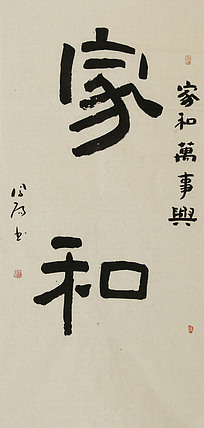 家和
家和萬事興